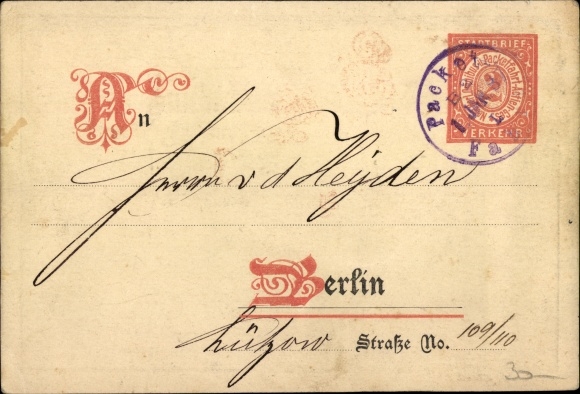 STADTBRIEF
2
VERKEHR
Packet
Fa
An
Herrn v. d. Heyden
Berlin
Lützow Straße No. 109/110
30-